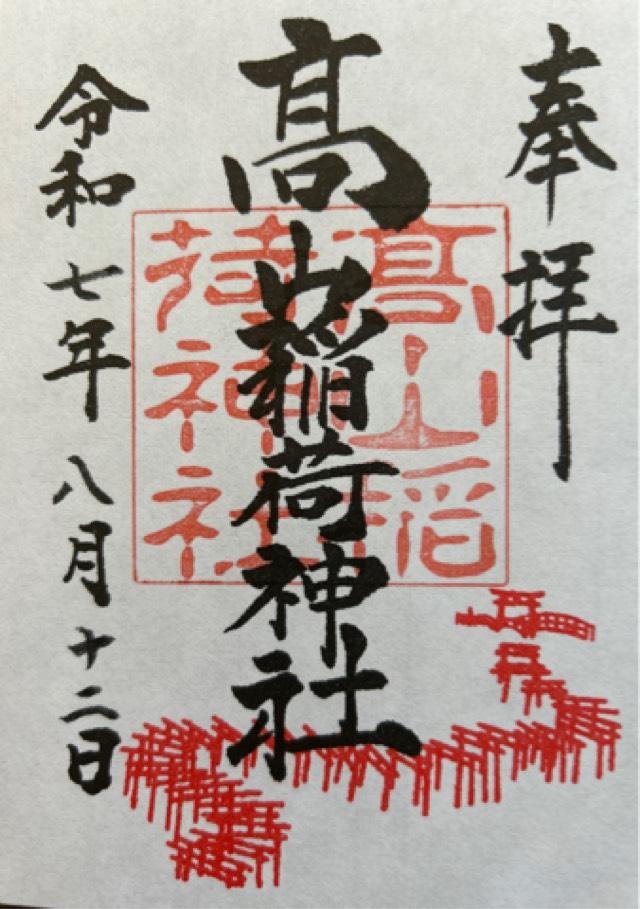 奉拝
髙山稲荷神社
髙山稲荷神社
令和七年八月十二日